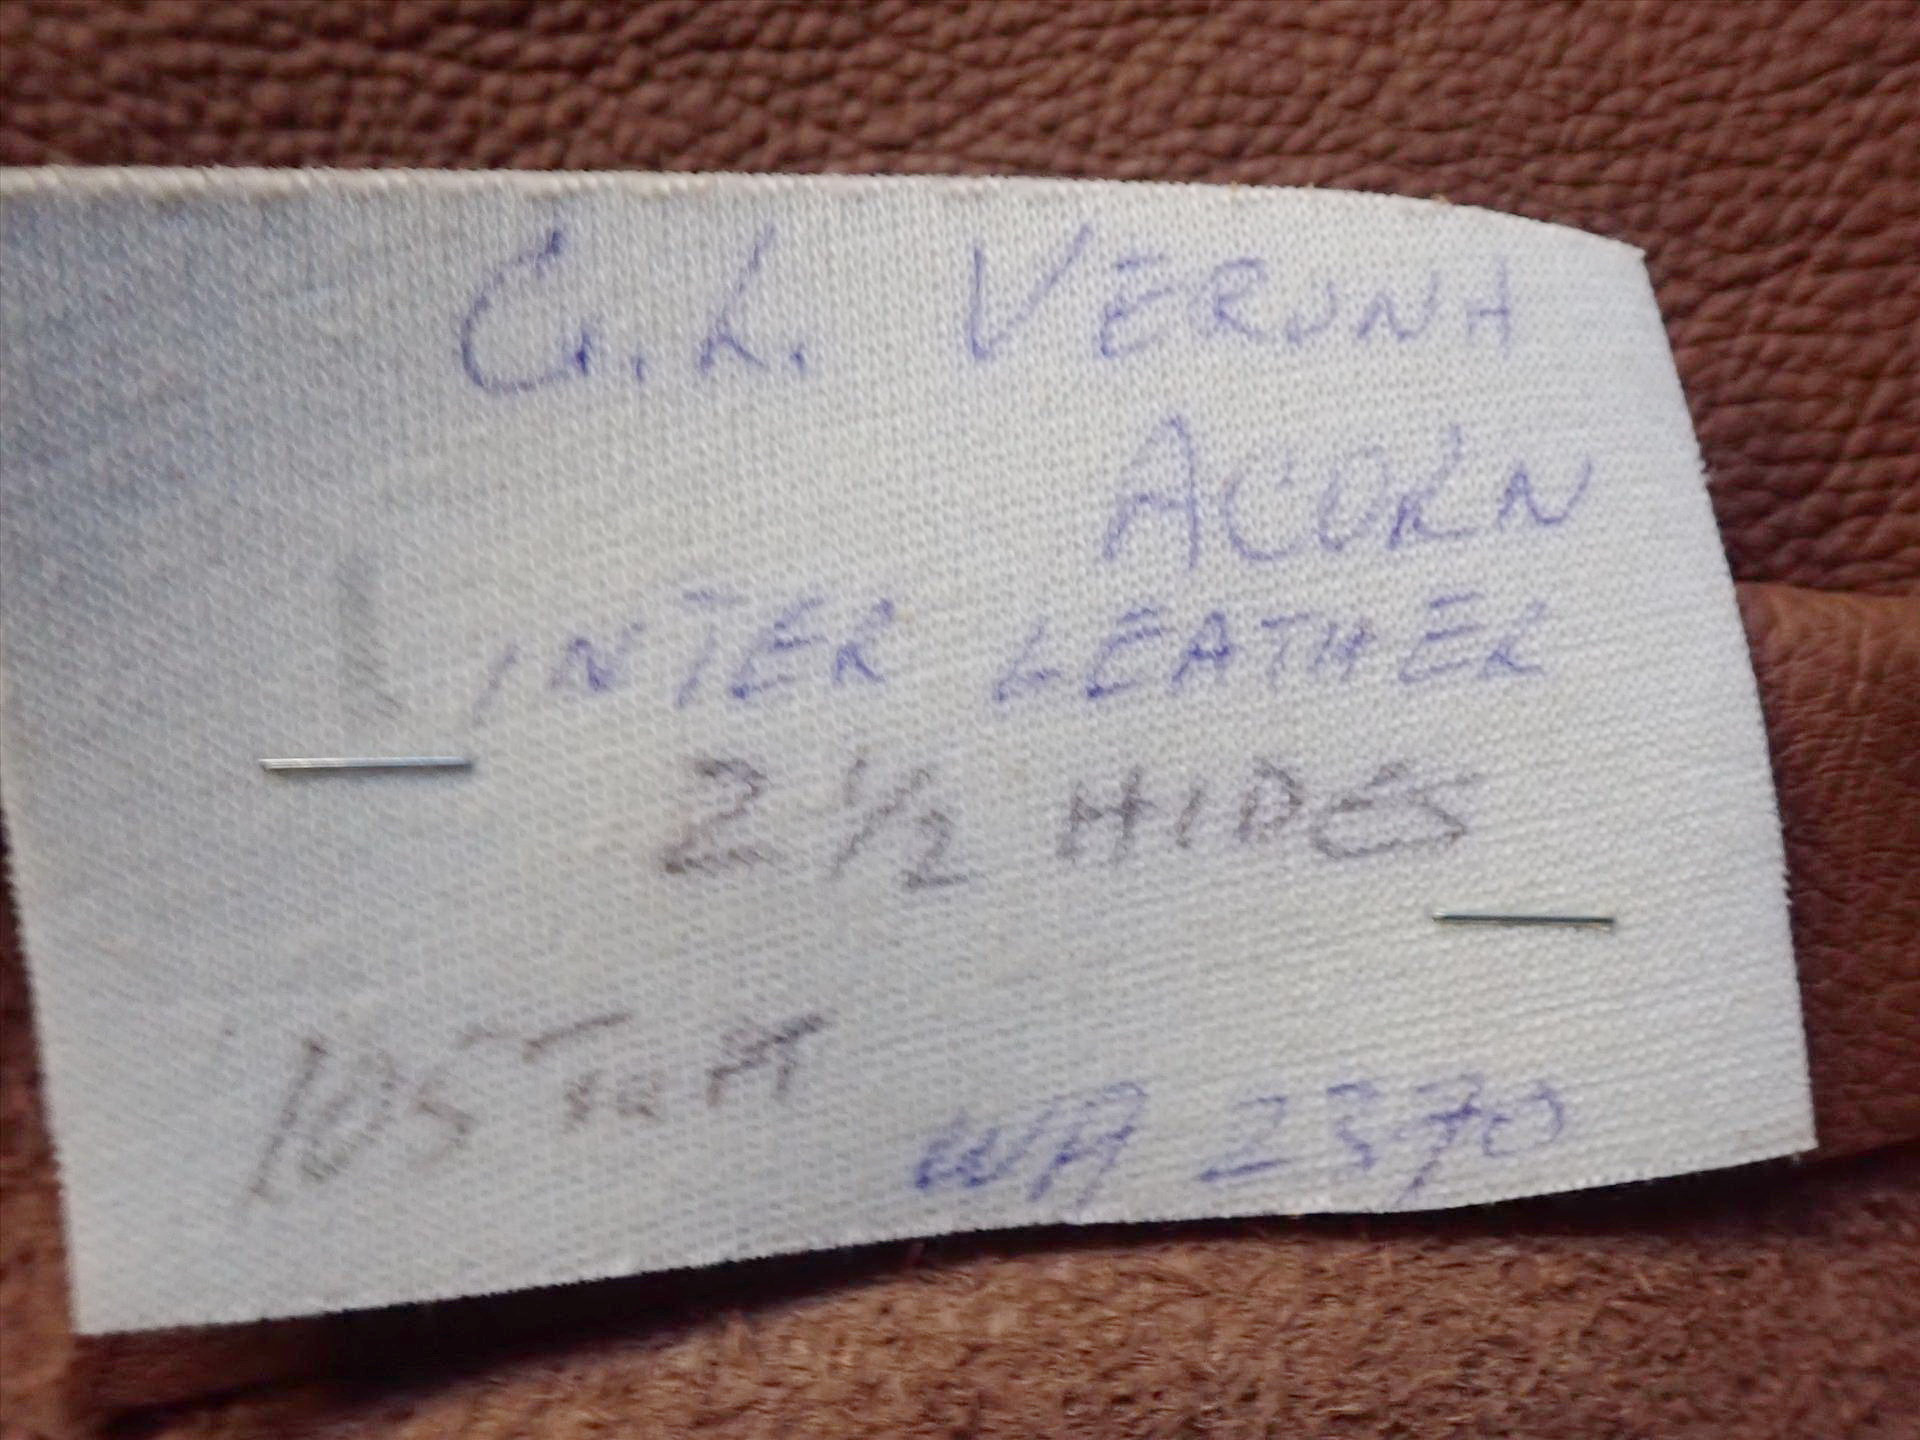 G.L. VERONA
ACORN
INTER LEATHER
2 1/2 HIDES
105 SQ FT
WA 2370